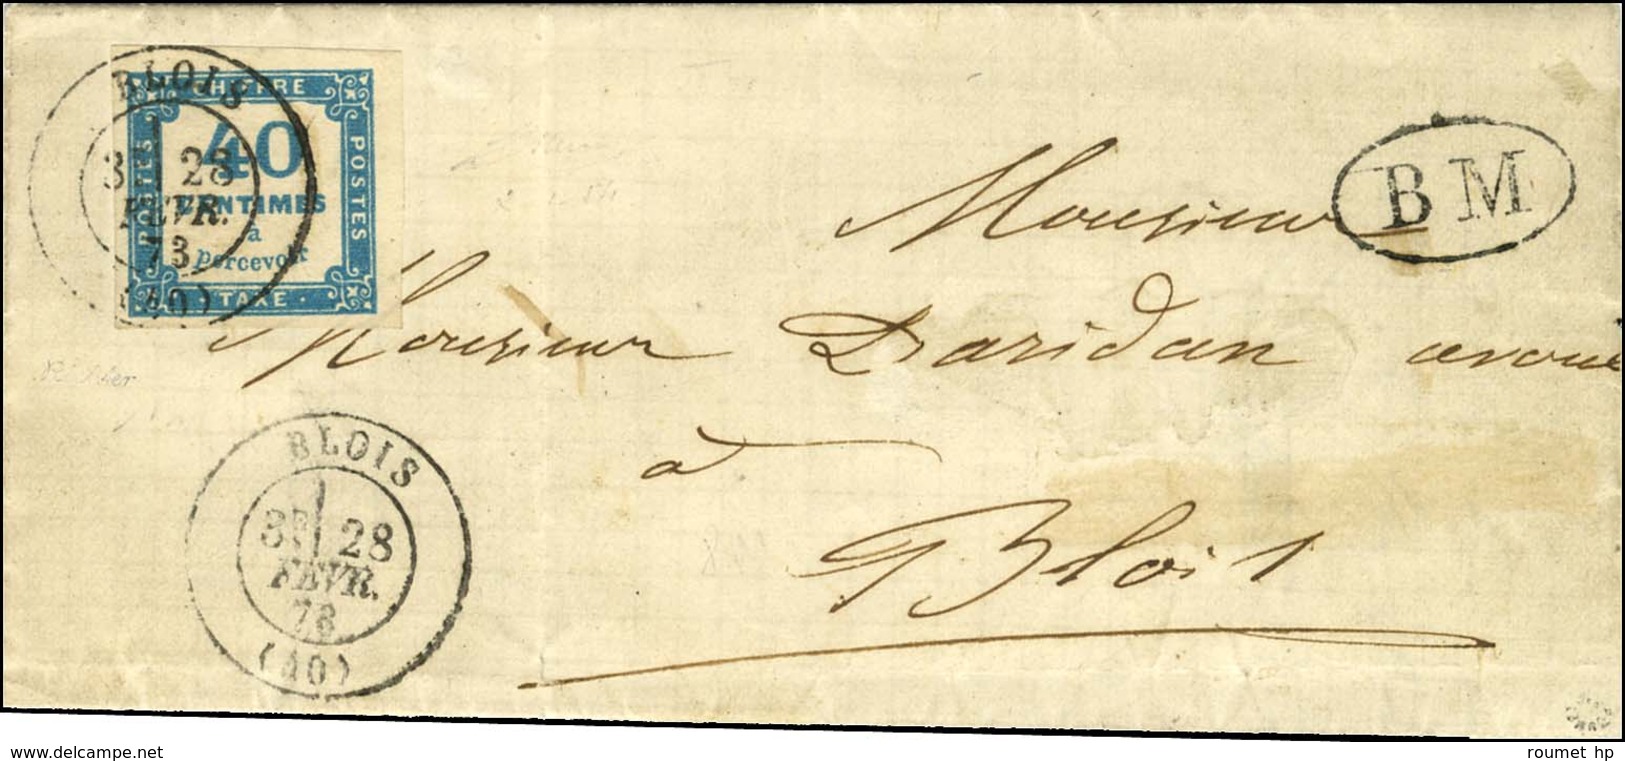 BLOIS
3E 28
FEVR.
73
(40)
CHIFFRE
POSTES
40
CENTIMES
à
percevoir
POSTES
TAXE
BM
Monsieur
Monsieur Daridan avoué
à
Blois
BLOIS
3E 28
FEVR.
73
(40)
www.delcampe.net
roumet hp